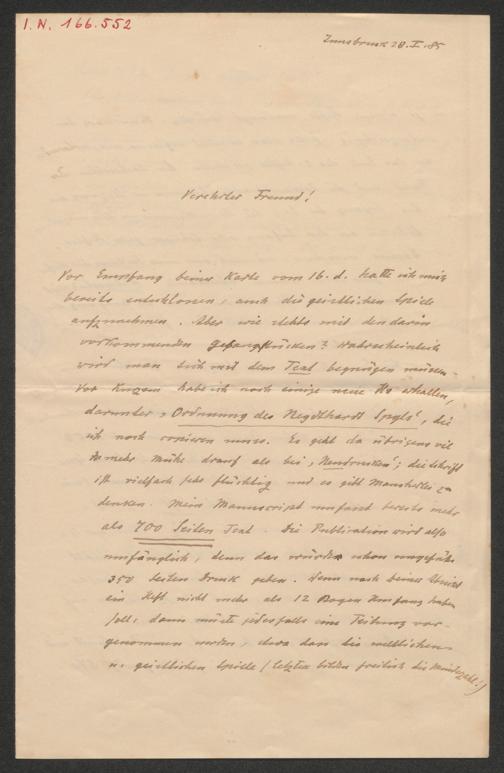 I. N. 166.552
Innsbruck 28. I. 85
Verehrter Freund!
Vor Empfang deiner Karte vom 16. d. hatte ich mich
bereits entschlossen, auch die geistlichen Spiele
aufzunehmen. Aber wie stehts mit den darin
vorkommenden Gesangstücken? Wahrscheinlich
wird man sich mit dem Text begnügen müssen.
Vor Kurzem habe ich noch einige neue Hs erhalten,
darunter, Ordnunng des Negdthardt Spyls', die
ich noch copieren muss. Es geht da übrigens viel
mehr Mühe drauf als bei, Neudrucken'; die Schrift
ist vielfach sehr flüchtig und es gibt Mancherlei zu
denken. Mein Manuscript umfasst bereits mehr
als 700 Seiten Text. Die Publication wird also
umfänglich, denn das würde schon ungefähr
350 Seiten Druck geben. Wenn nach deiner
ein Heft nicht mehr als 12 Bogen Umfang haben
soll, dann müste jedesfalls eine Teilung vor-
genommen werden, etwa dass die weltlichen
u. geistlichen Spiele (letztere bilden freilich die Minderzahl.)